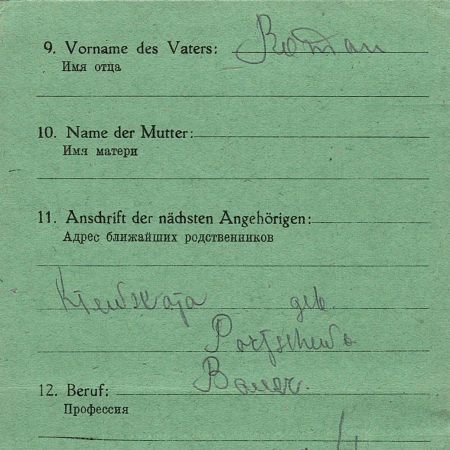 9. Vorname des Vaters: Roman
Имя отца
10. Name der Mutter:
Имя матери
11. Anschrift der nächsten Angehörigen:
Адрес ближайших родственников
geb
12. Beruf: Bauer.
Профессия